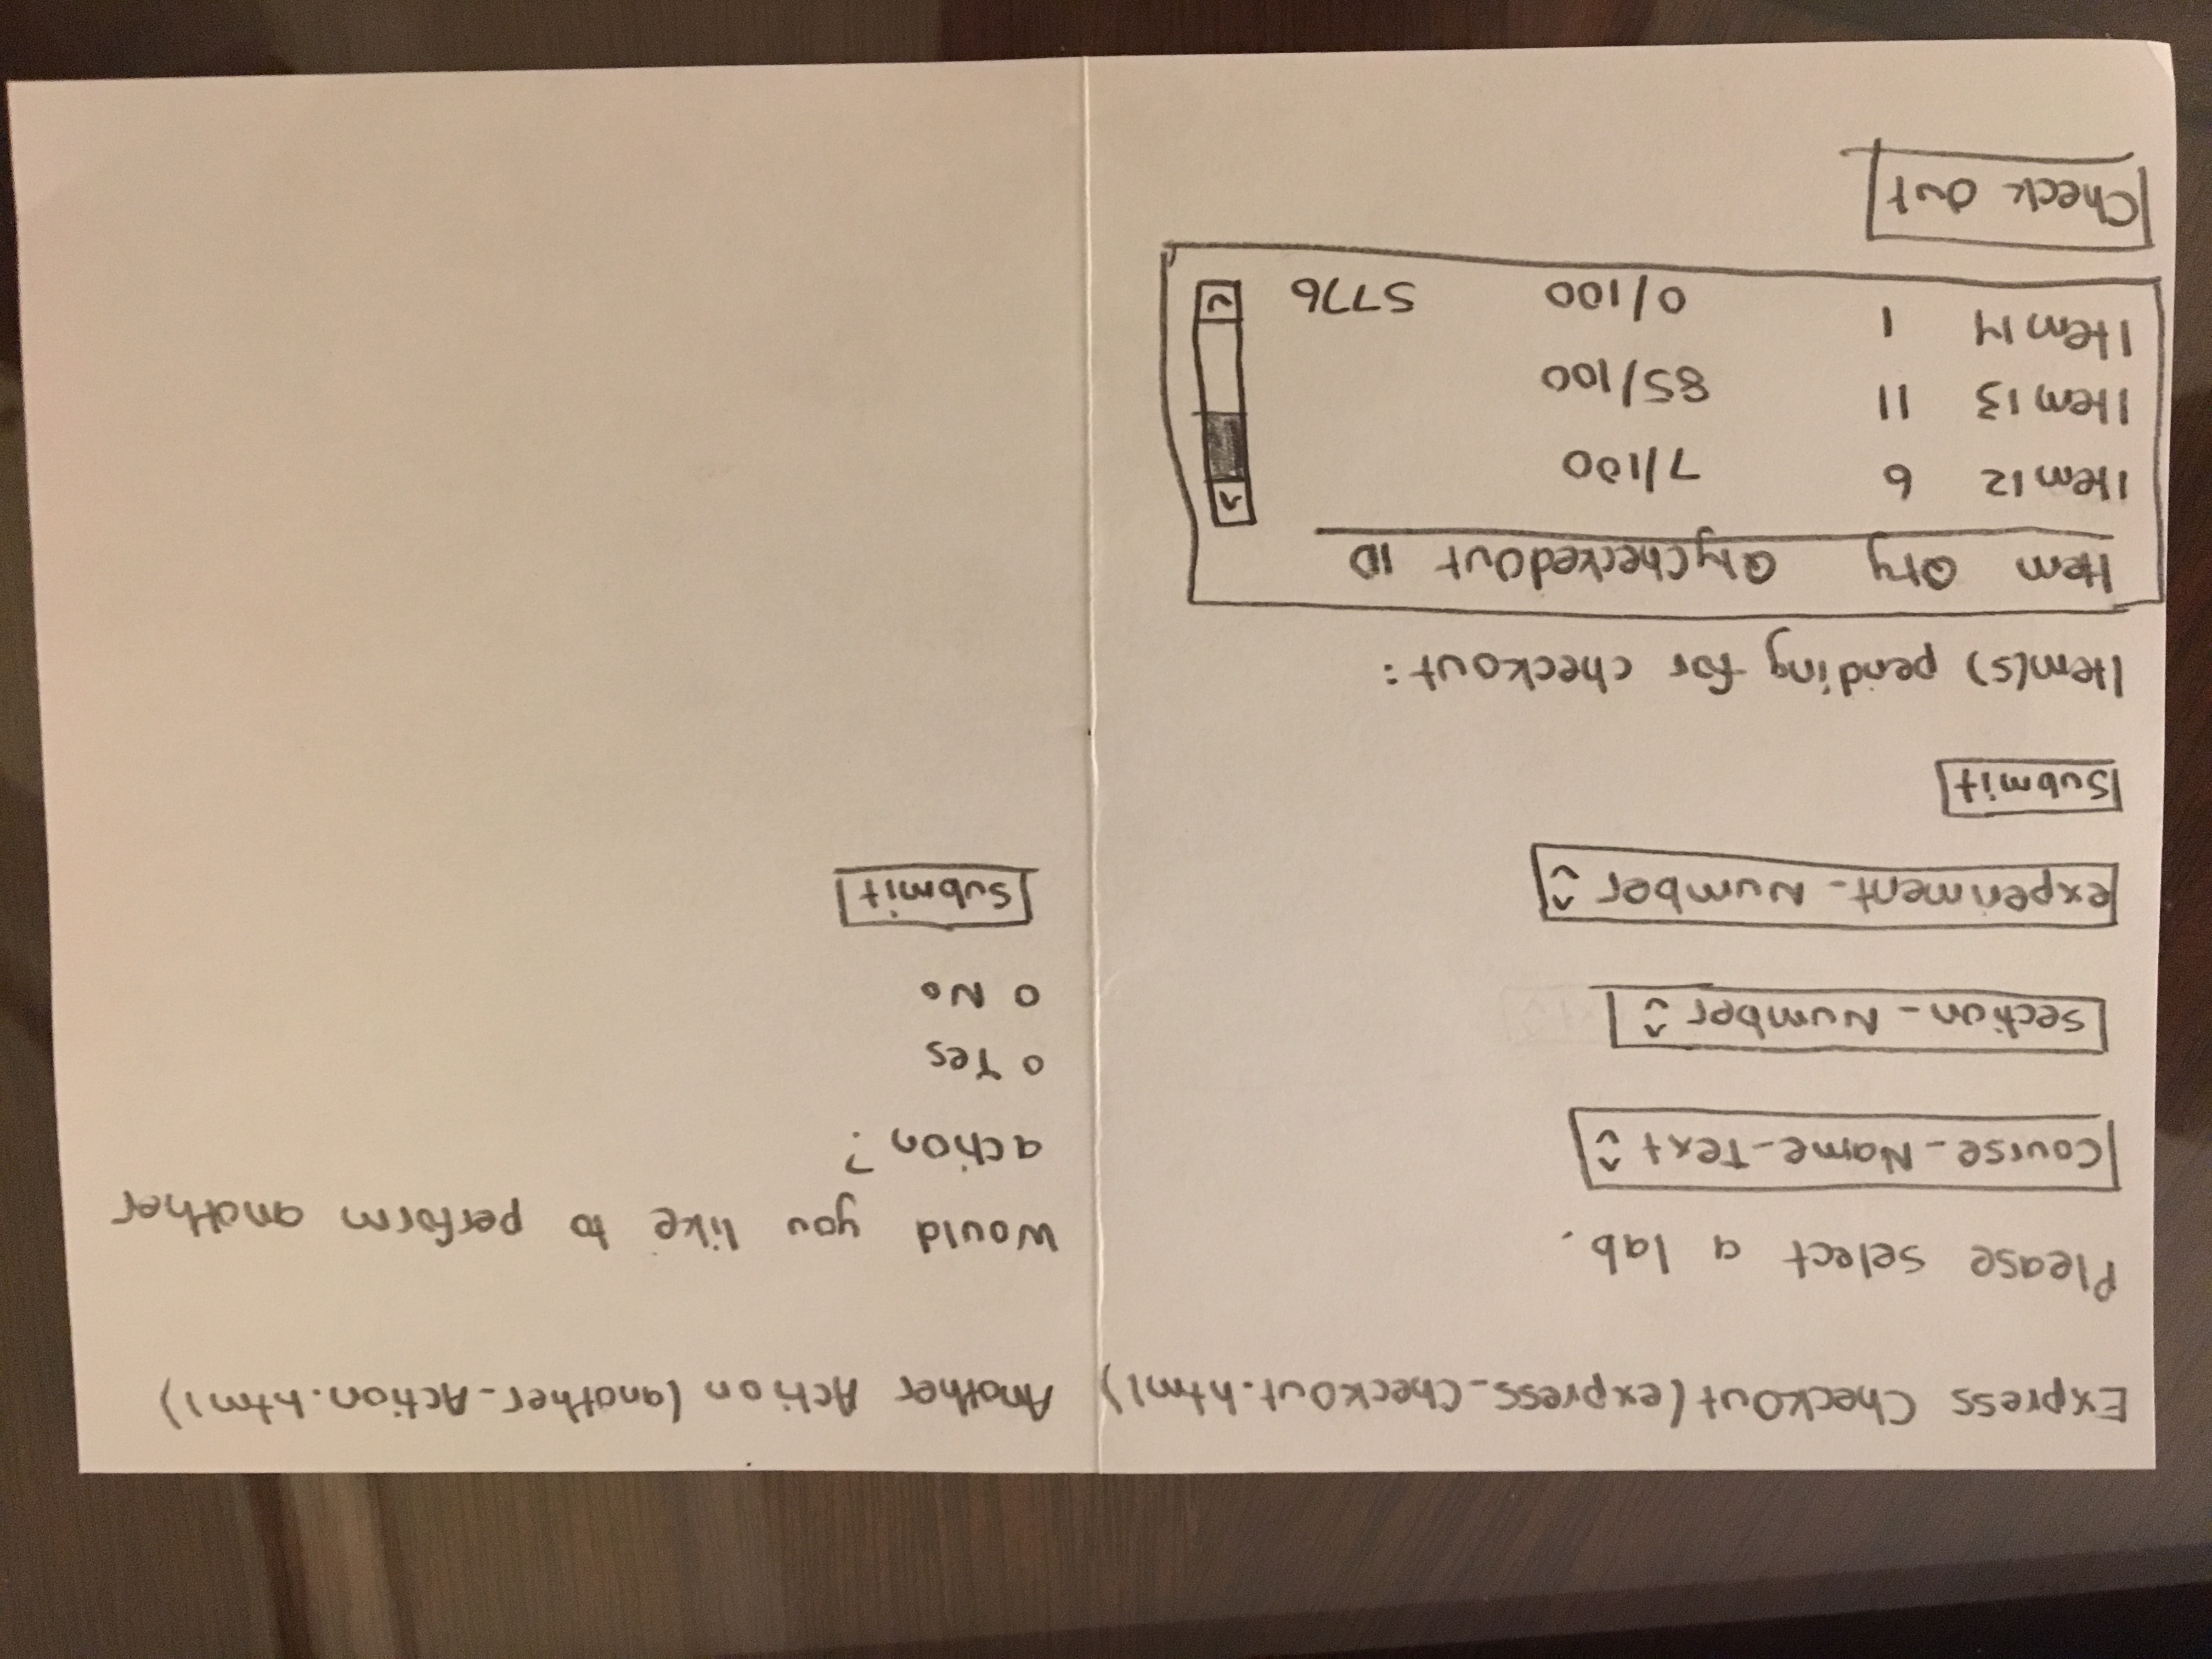 Express CheckOut (express_CheckOut.html)
Please select a lab.
Course_Name_Text
section_Number
experiment_Number
Submit
Item(s) pending for checkout:
Item Qty QtyCheckedOut ID
Item 12 6 7/100
Item 13 11 85/100
Item 14 1 0/100 5776
Check Out
Another Action (another_Action.html)
Would you like to perform another
action?
Yes
No
Submit